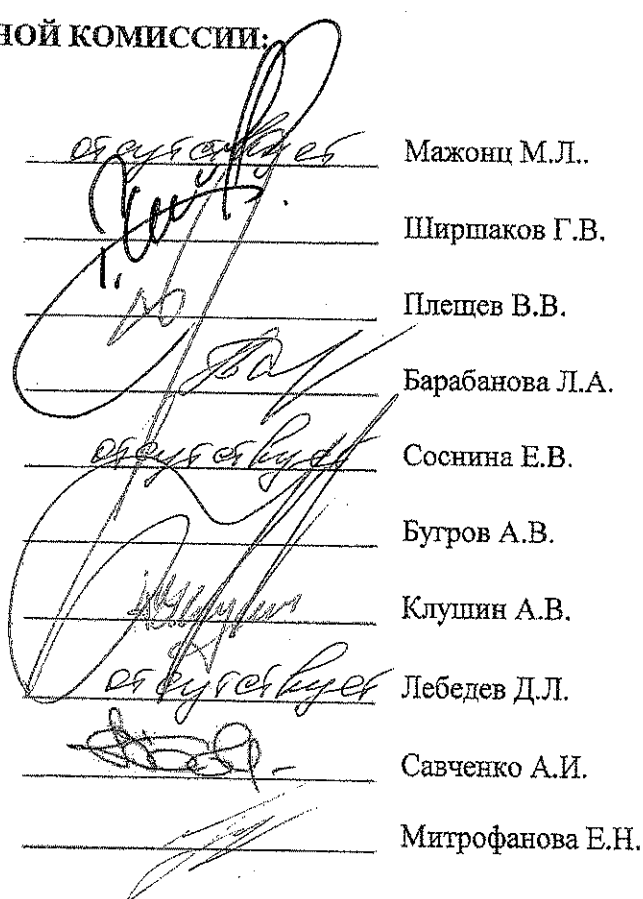 НОЙ КОМИССИИ:
отсутствует Мажонц М.Л..
Ширшаков Г.В.
Плещев В.В.
Барабанова Л.А.
отсутствует Соснина Е.В.
Бугров А.В.
Клушин А.В.
отсутствует Лебедев Д.Л.
Савченко А.И.
Митрофанова Е.Н.